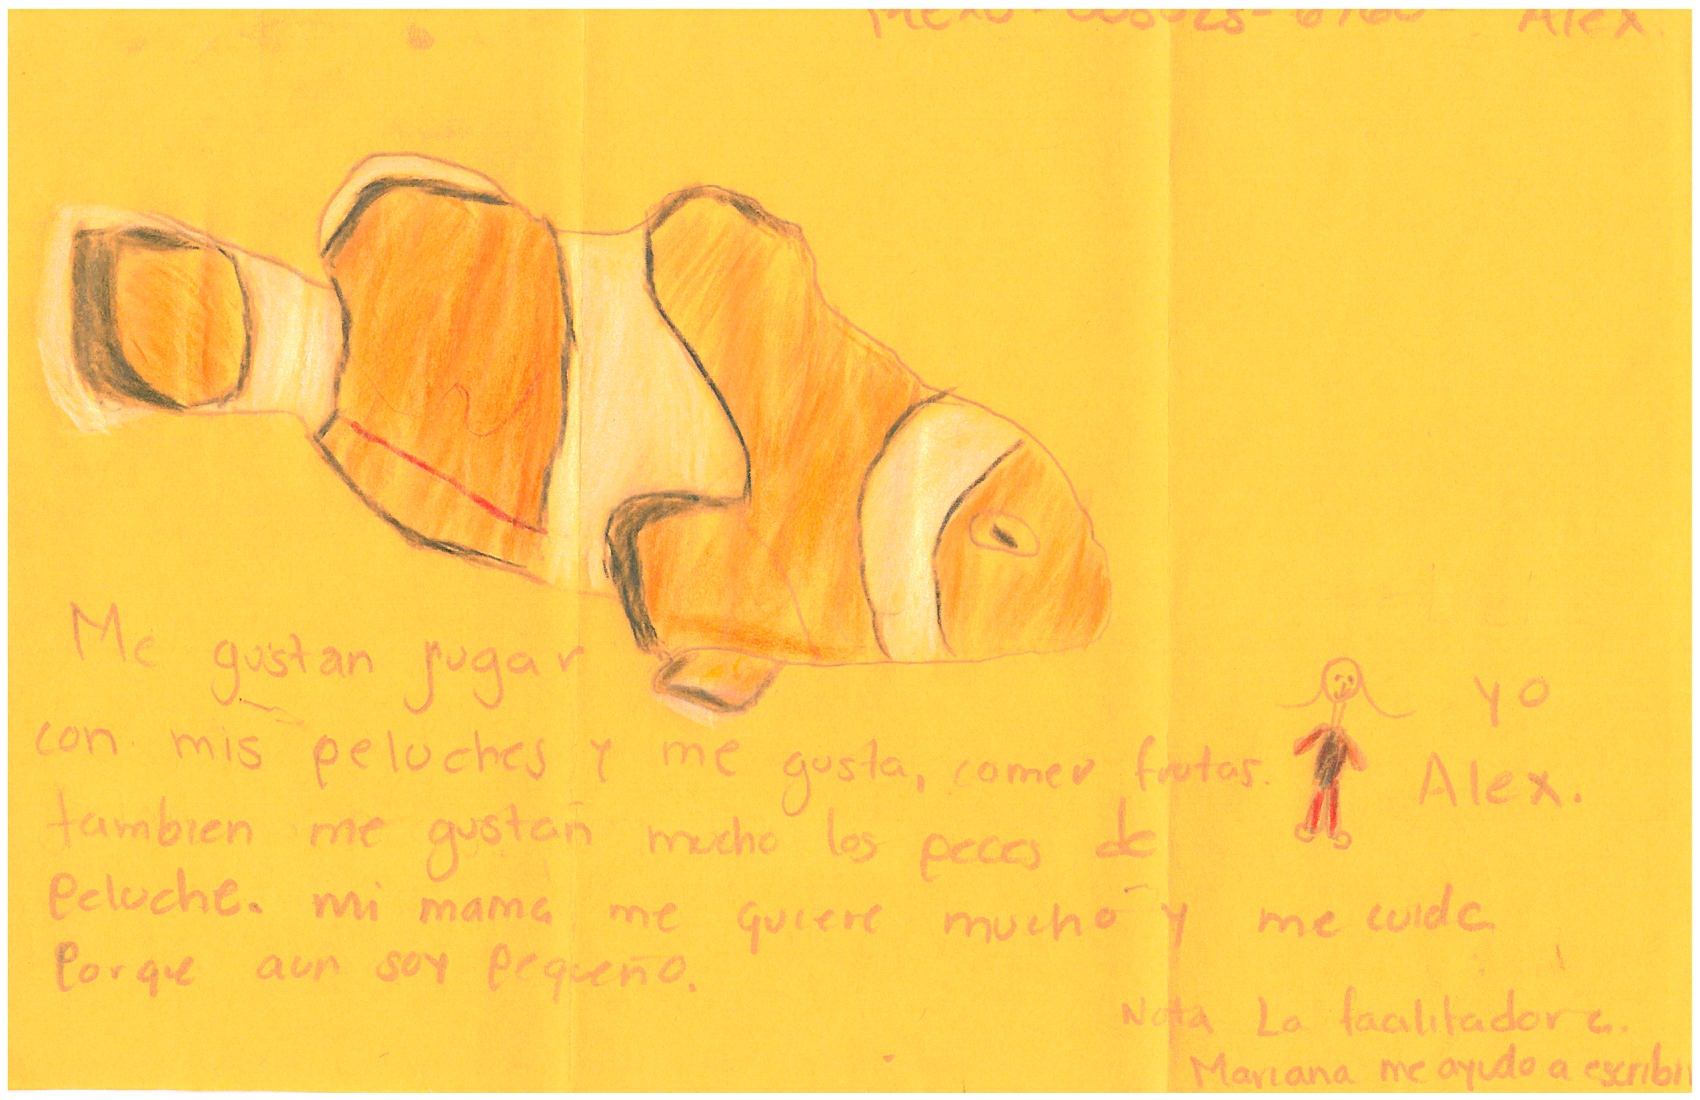 Alex.
Me gustan jugar
con mis peluches y me gusta, comer frutas.
tambien me gustan mucho los peces de
peluche. mi mama me quiere mucho y me cuida
Porque aun soy pequeño.
yo
Alex.
Nota La facilitadora.
Mariana me ayudo a escribir